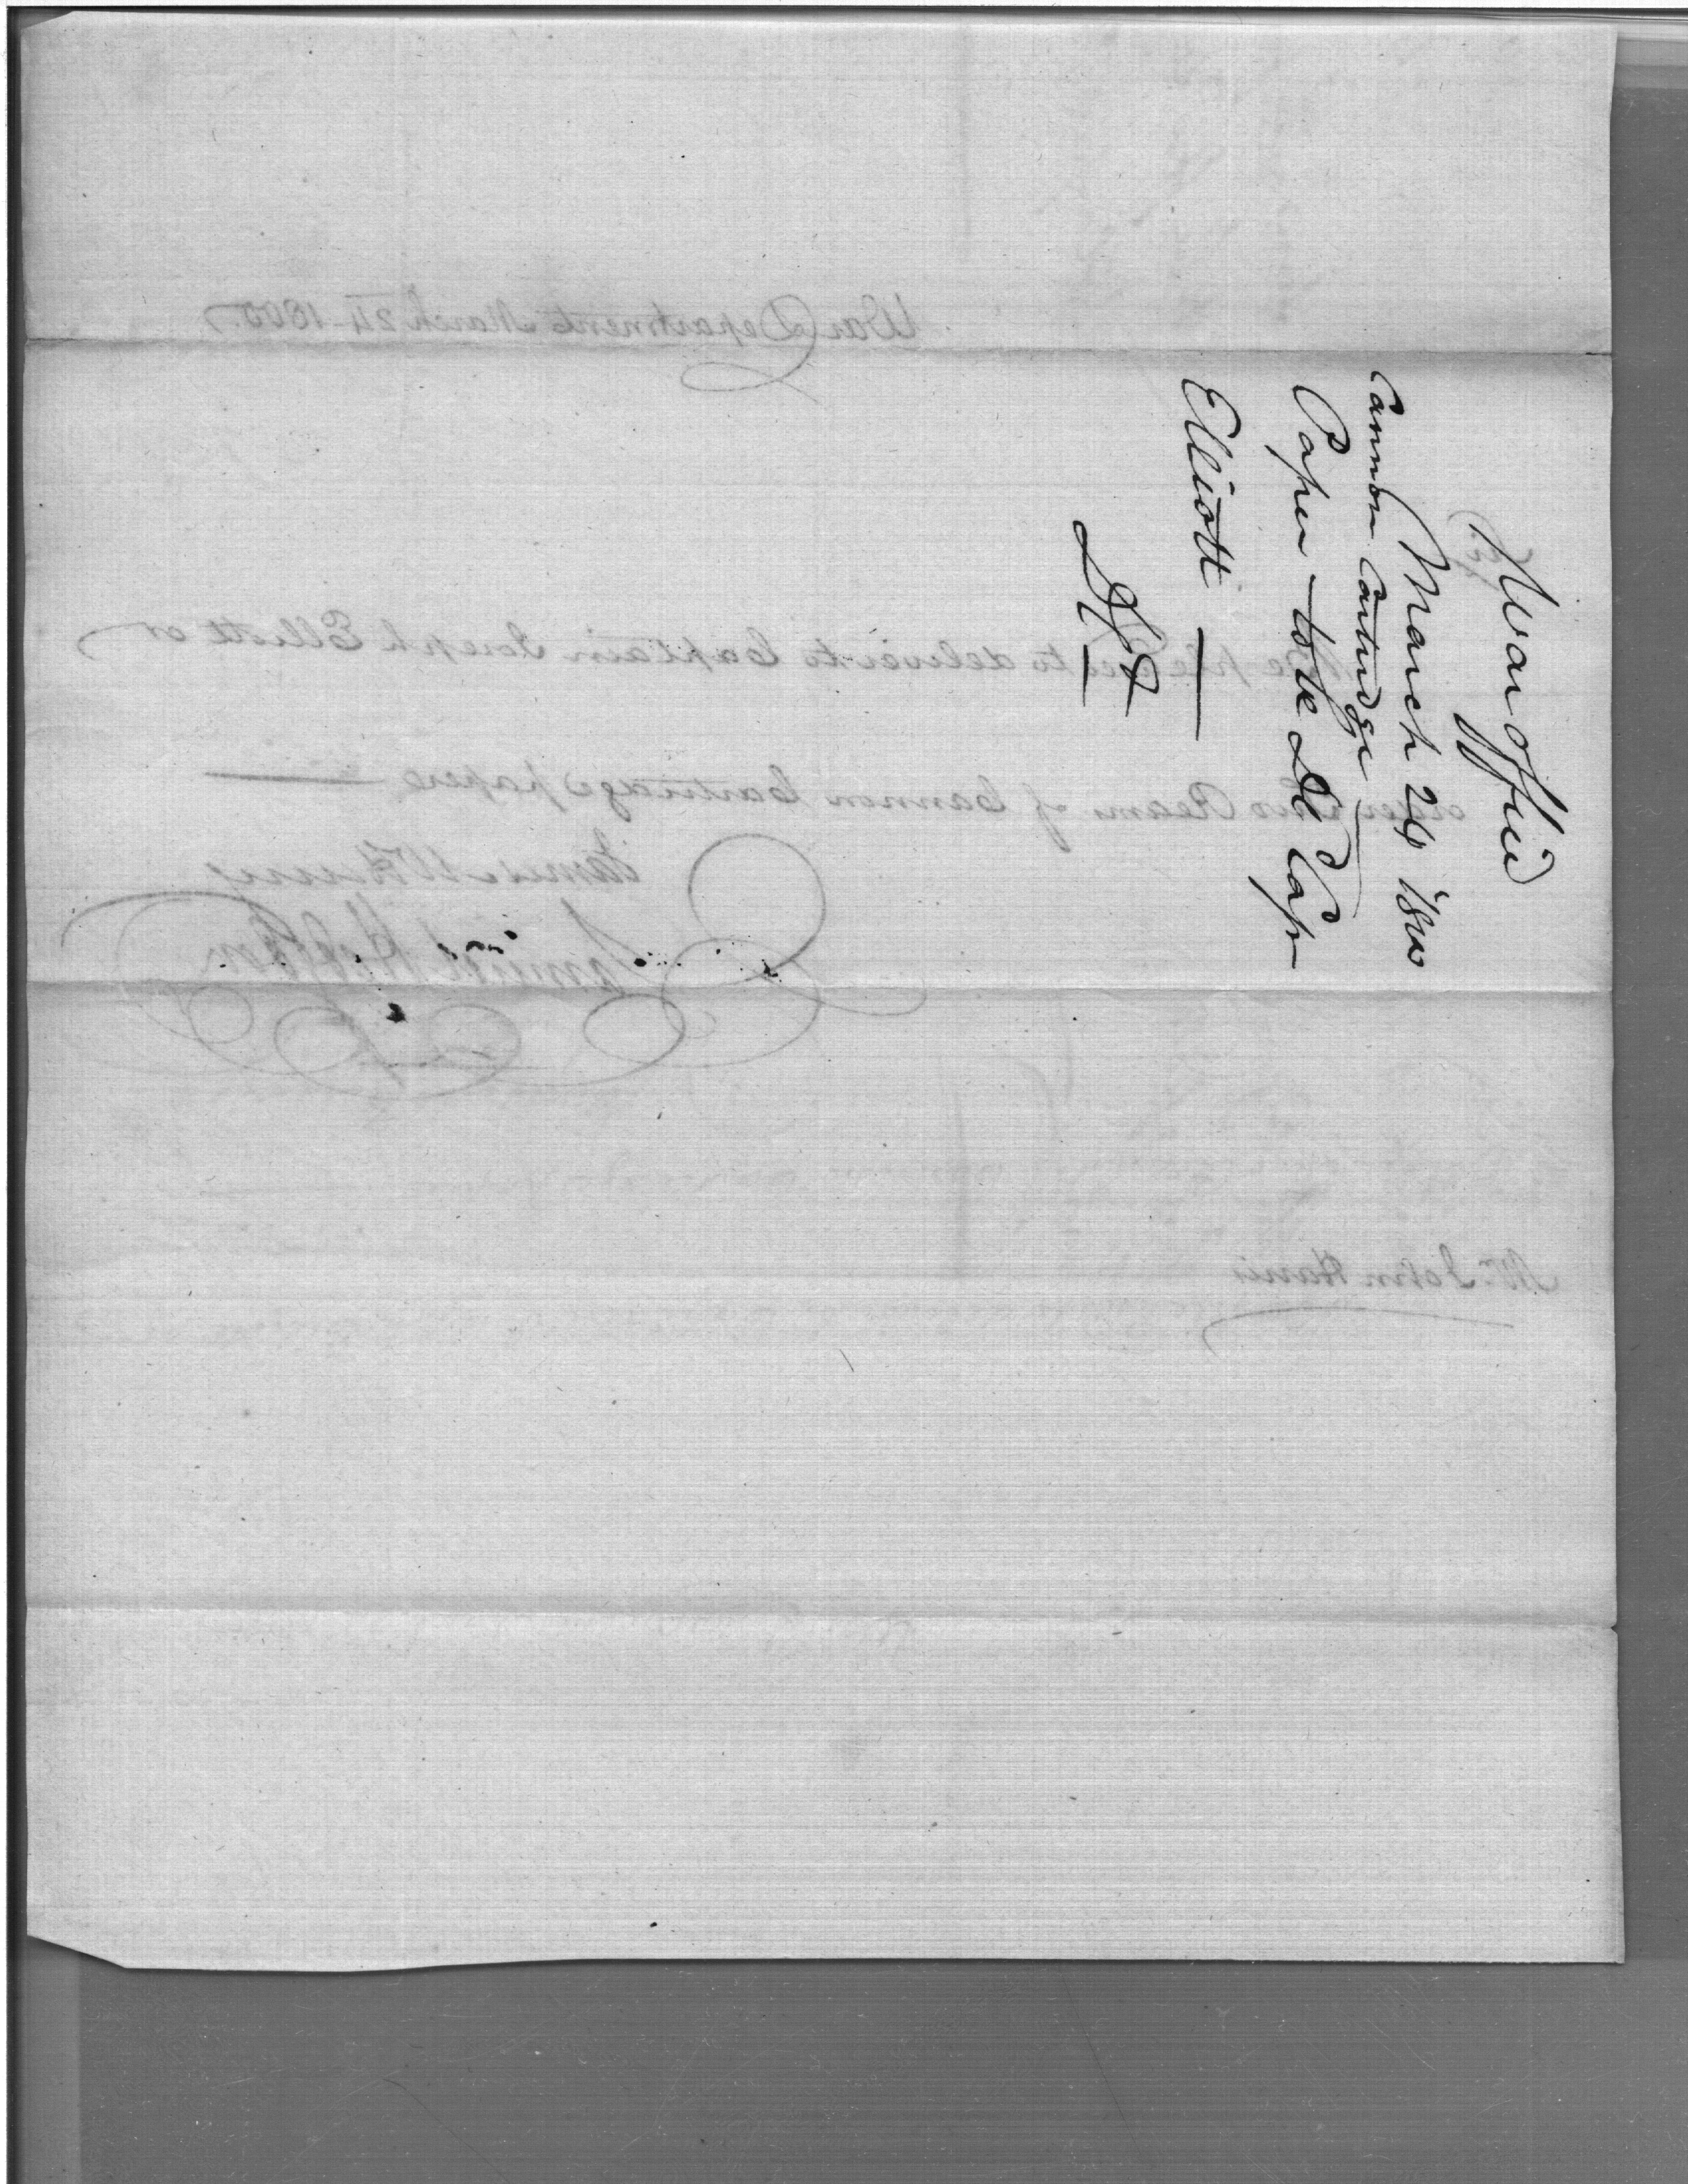 War Office
March 24 1800
Cannon Cartridge
Paper - to be Dd Cap
Elliott
War Department March 24 1800.
Sir
to deliver to Captain Joseph Elliott or
order Two Reams of Cannon Cartridge paper
James McHenry
Samuel Hodgdon
Mr. John Harris